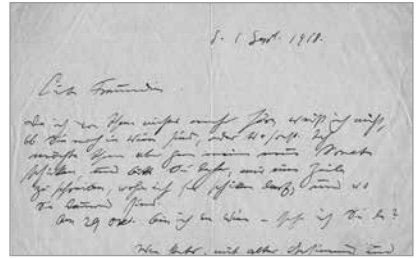 1 Sept. 1918.
Liebe Freundin
Da ich von Ihnen nichts mehr höre, weiß ich nicht,
ob Sie noch in Wien sind, oder Ich
möchte Ihnen aber gern meine neue Sonate
schicken, und bitte Sie daher, mir eine Zeile
zu schreiben, wohin ich sie schicken darf, und wo
Sie dauernd sind.
Am 29 Okt. bin ich in Wien – seh ich Sie da?
mit alter Gesinnung und